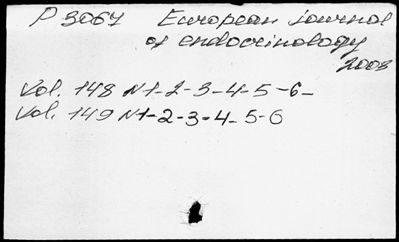 P 3064 European journal
of endocrinology
2003
Vol. 148 N 1-2-3-4-5-6-
Vol. 149 N 1-2-3-4-5-6